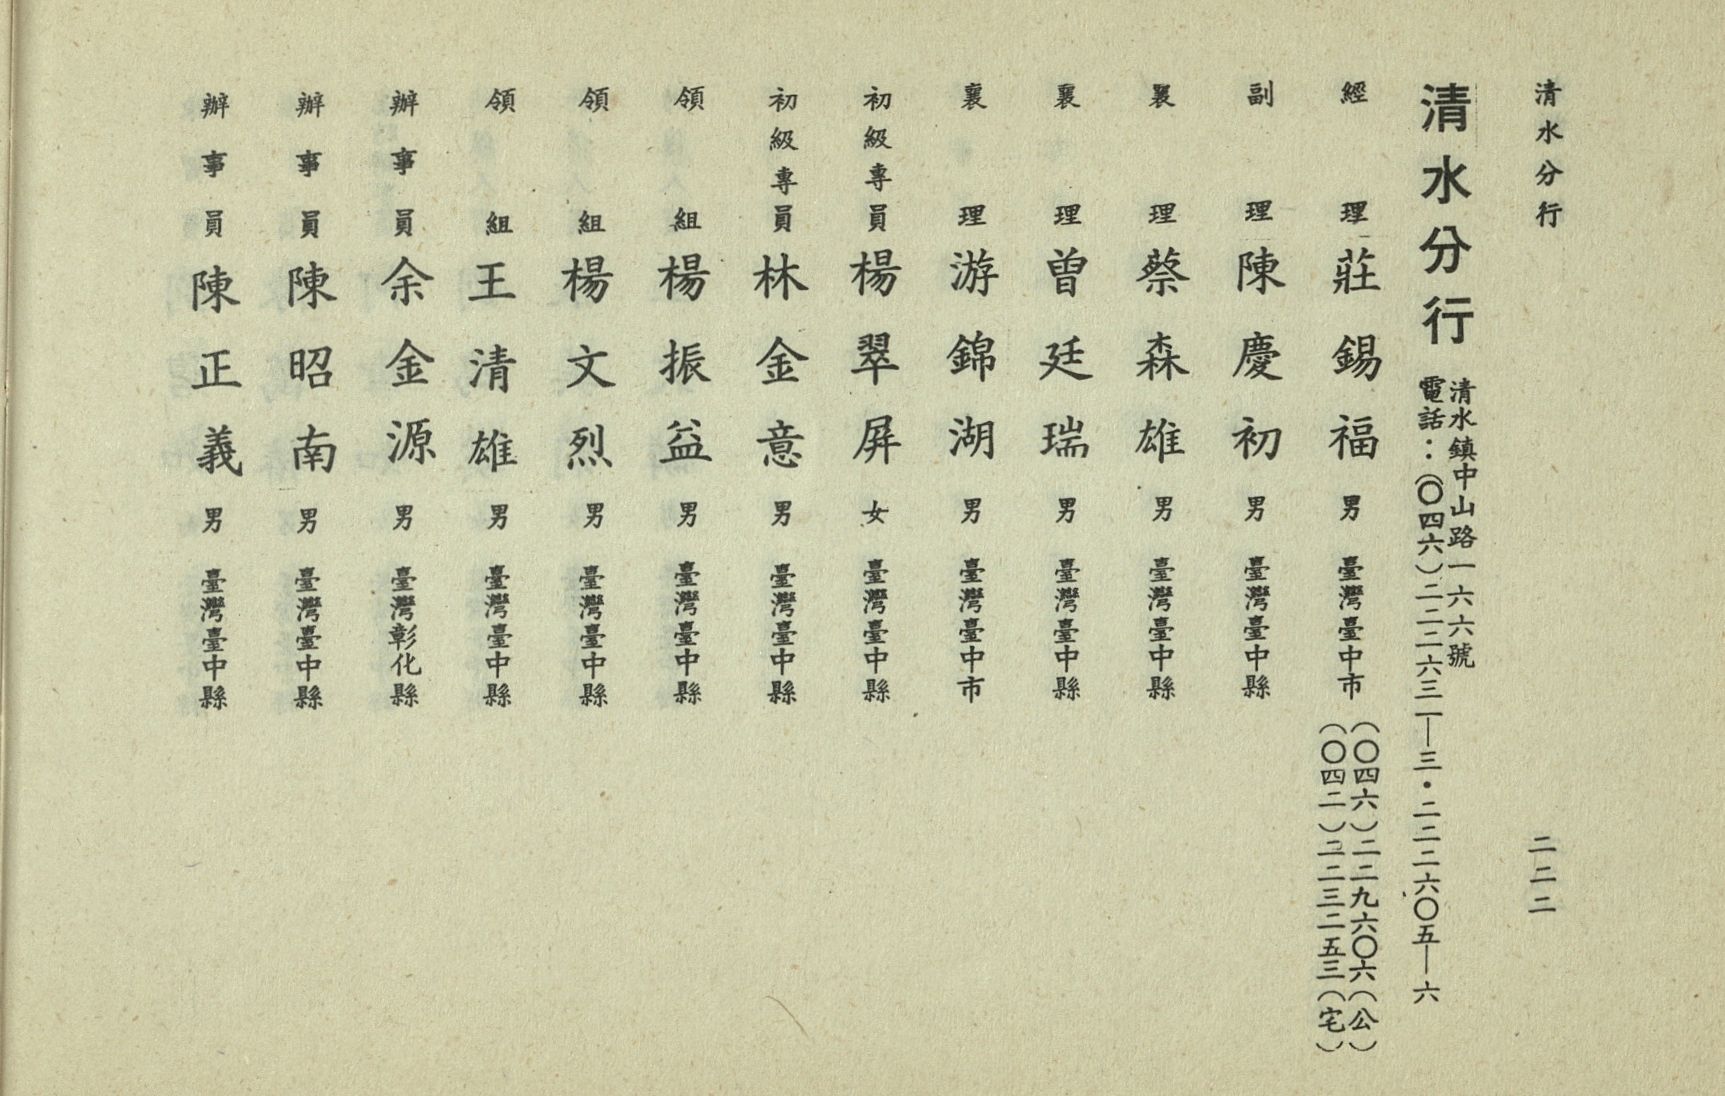 清水分行
二二二
清水分行
清水鎮中山路一六六號
電話：（〇四六）二二二六三一—三・二二二六〇五—六
經理 莊錫福 男 臺灣臺中市
（〇四六）二二九六〇六（公）
（〇四二）二二三二五三（宅）
副理 陳慶初 男 臺灣臺中縣
襄理 蔡森雄 男 臺灣臺中縣
襄理 曾廷瑞 男 臺灣臺中縣
襄理 游錦湖 男 臺灣臺中市
初級專員 楊翠屏 女 臺灣臺中縣
初級專員 林金意 男 臺灣臺中縣
領組 楊振益 男 臺灣臺中縣
領組 楊文烈 男 臺灣臺中縣
領組 王清雄 男 臺灣臺中縣
辦事員 余金源 男 臺灣彰化縣
辦事員 陳昭南 男 臺灣臺中縣
辦事員 陳正義 男 臺灣臺中縣